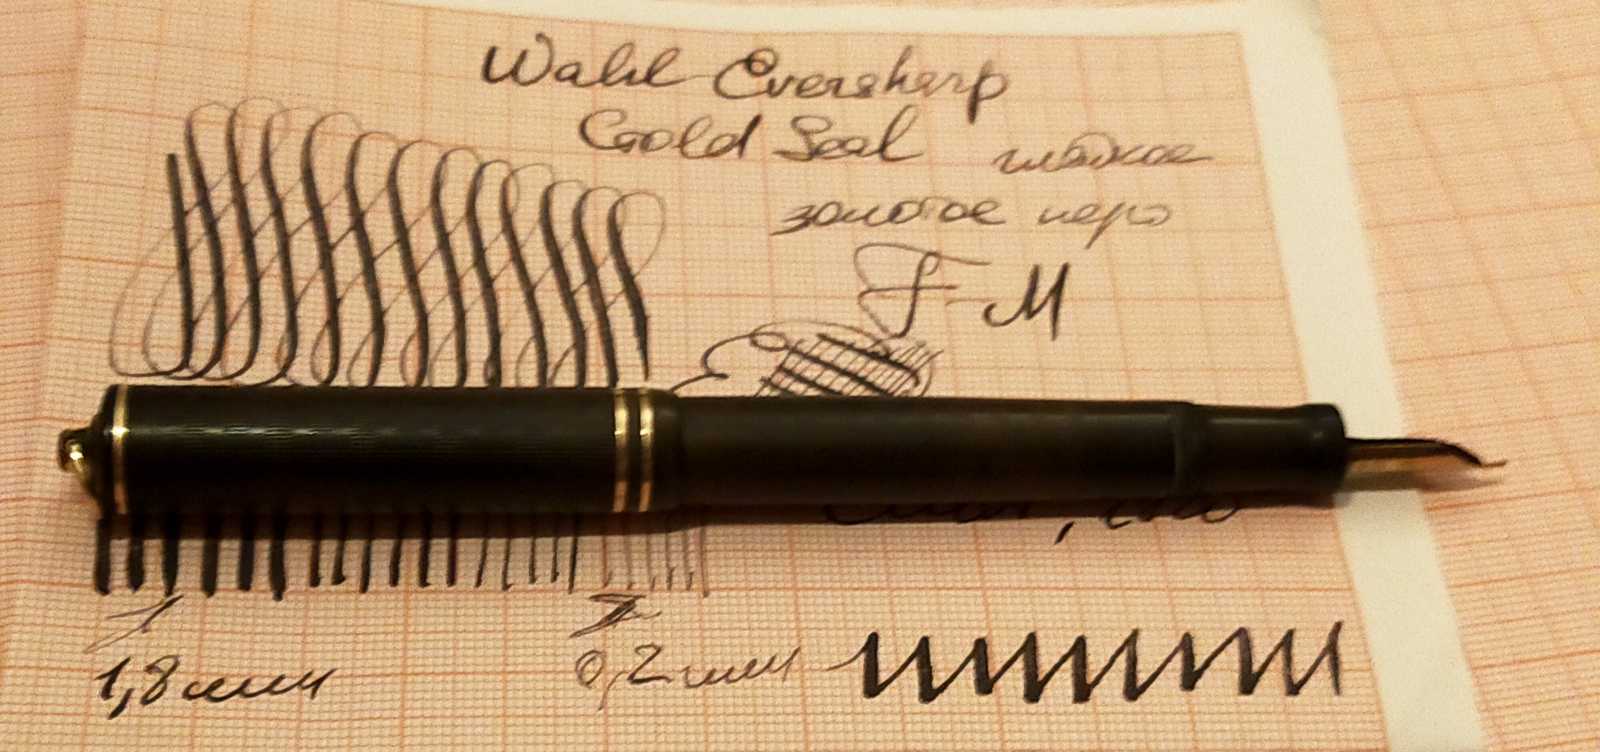 Wahl Eversharp
Gold Seal гибкое
золотое перо
F-M
1,8 мм 0,2 мм